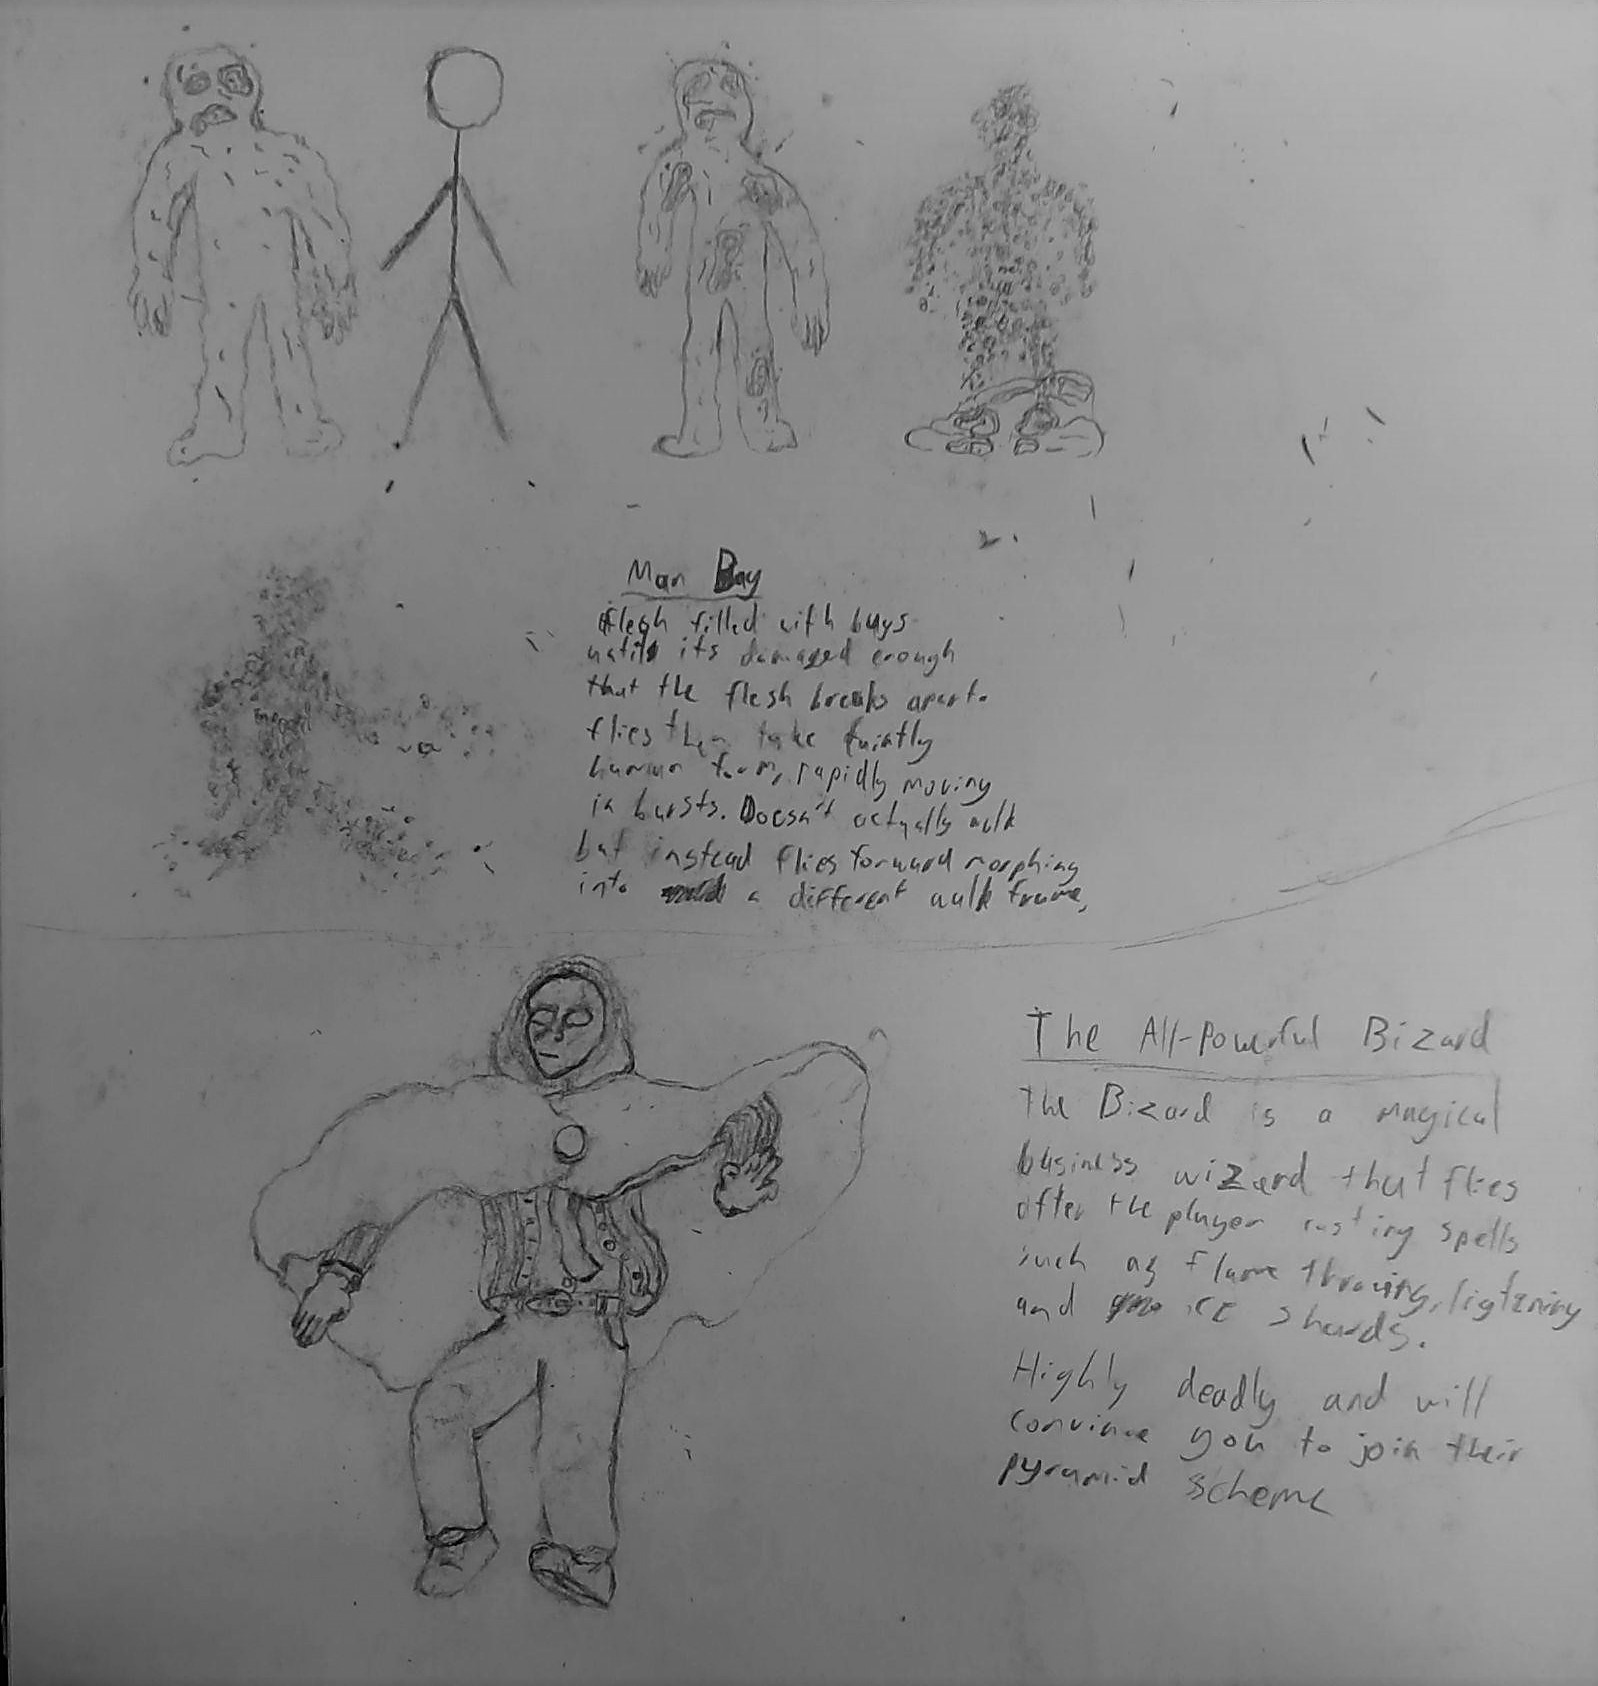 Man Bag
flesh filled with bugs
until its damaged enough
that the flesh breaks apart.
flies then take faintly
human form, rapidly moving
in bursts. Doesn't actually walk
but instead flies forward morphing
into a different walk frame,
The All-Powerful Bizard
The Bizard is a magical
business wizard that flies
after the player casting spells
such as flame throwing, ligtning
and ice shards.
Highly deadly and will
convince you to join their
pyramid scheme